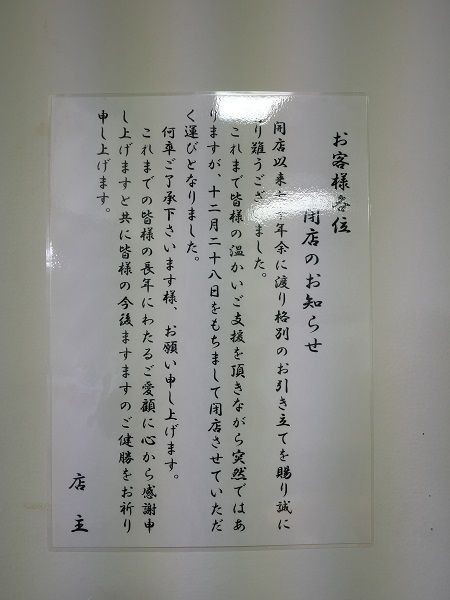 お客様各位
閉店のお知らせ
開店以来 年余に渡り格別のお引き立てを賜り誠に
り難うございました。
これまで皆様の温かいご支援を頂きながら突然ではあ
りますが、十二月二十八日をもちまして閉店させていただ
く運びとなりました。
何卒ご了承下さいます様、お願い申し上げます。
これまでの皆様の長年にわたるご愛顧に心から感謝申
し上げますと共に皆様の今後ますますのご健勝をお祈り
申し上げます。
店主